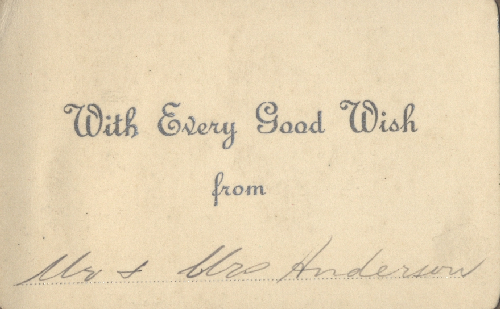 With Every Good Wish
from
Mr & Mrs Anderson